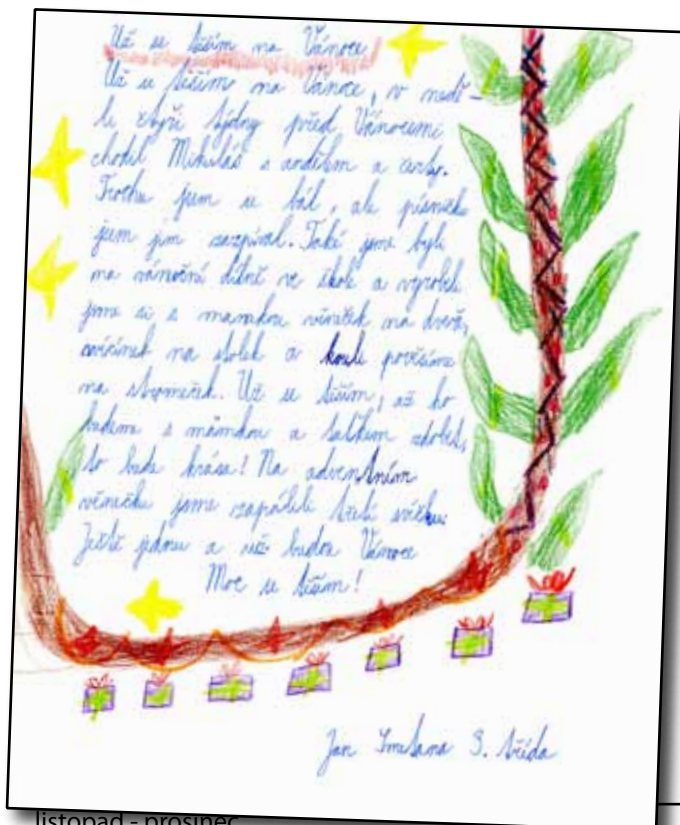 Už se těším na Vánoce
Už se těším na Vánoce, v nedě-
li čtyři týdny před Vánocemi
chodil Mikuláš s andělem a čerty.
Trochu jsem se bál, ale písničku
jsem jim zazpíval. Také jsme byli
na vánoční dílně ve škole a vyrobili
jsme si s mamkou věneček na dveře,
svícínek na stolek a kouli pověsíme
na stromeček. Už se těším, až ho
budem s mámkou a taťkem zdobit,
to bude krása! Na adventním
věnečku jsme zapálili třetí svíčku.
Ještě jednu a už budou Vánoce
Moc se těším!
Jan Smetana 3. třída
listopad - prosinec